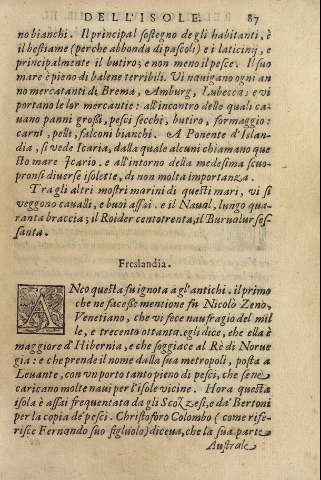 DELL'ISOLE. 87
no bianchi. Il principal sostegno de gli habitanti, è
il bestiame (perche abbonda di pascoli) e i laticinij, e
principalmente il butiro; e non meno il pesce. Il suo
mare è pieno di balene terribili. Vi nauigano ogni an
no mercatanti di Brema, Amburg, Lubecca: e vi
portano le lor mercantie: all'incontro delle quali ca-
uano panni grossi, pesci secchi, butiro, formaggio:
carni, pelli, falconi bianchi. A Ponente d'Islan-
dia, si vede Icaria, dalla quale alcuni chiamano que
sto mare Icario. e all'intorno della medesima scuo-
pronsi diuerse isolette, di non molta importanza.
Tra gli altri mostri marini di questi mari, vi si
veggono caualli, e buoi assai. e il Naual, lungo qua-
ranta braccia; il Roider centotrenta, il Burualur ses-
santa.
Freslandia.
ANco questa fu ignota a gl'antichi. il primo
che ne facesse mentione fu Nicolò Zeno,
Venetiano, che vi fece naufragio del mil
le, e trecento ottanta. egli dice, che ella è
maggiore d'Hibernia, e che soggiace al Rè di Norue
gia: e che prende il nome dalla sua metropoli, posta a
Leuante, con vn porto tanto pieno di pesci, che se ne
caricano molte naui per l'isole vicine. Hora questa
isola è assai frequentata da gli Scozzesi, e da' Bertoni
per la copia de' pesci. Christoforo Colombo (come rife-
risce Fernando suo figluolo) diceua, che la sua parte
Australe